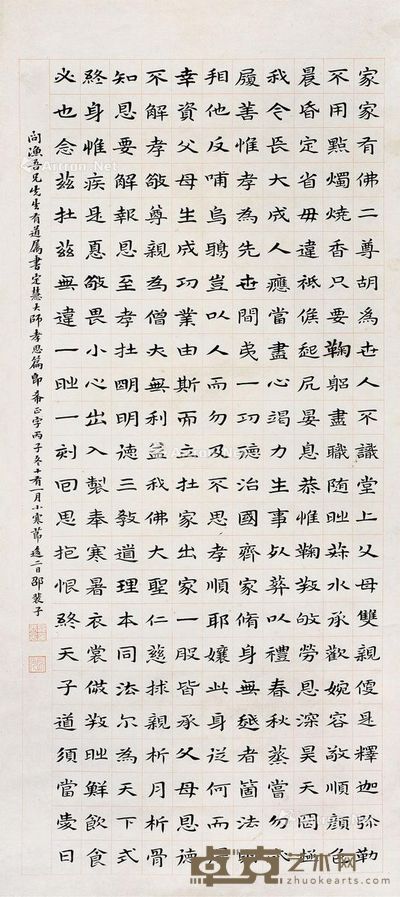 家家有佛二尊胡為世人不識堂上父母雙親便是釋迦彌勒
不用點燭燒香只要鞠躬盡職隨時菽水承歡婉容敬順顏色
晨昏定省毋違祗候起凥晏息恭惟鞠養劬勞恩深昊天罔極
我今長大成人應當盡心竭力生事死葬以禮春秋蒸嘗勿
履善惟孝為先世間第一功德治國齊家脩身無越者箇法則
相他反哺烏鴉豈以人而勿及不思孝順耶孃此身從何而
幸資父母生成功業由斯而立在家出家一般皆承父母恩德
不解孝敬尊親為僧大無利益我佛大聖仁慈捄親析月析骨
知恩要解報恩至孝在明明德三敎道理本同法尔為天下式
終身惟疾是憂敬畏小心出入製奉寒暑衣裳供養時鮮飲食
必也念茲在茲無違一時一刻囘思抱恨終天子道須當愛日
向漁吾兄先生有道屬書定慧大師孝思篇即希正字丙子冬十有一月小寒節逺二日邵裴子
卓克艺术网
www.zhuokearts.com